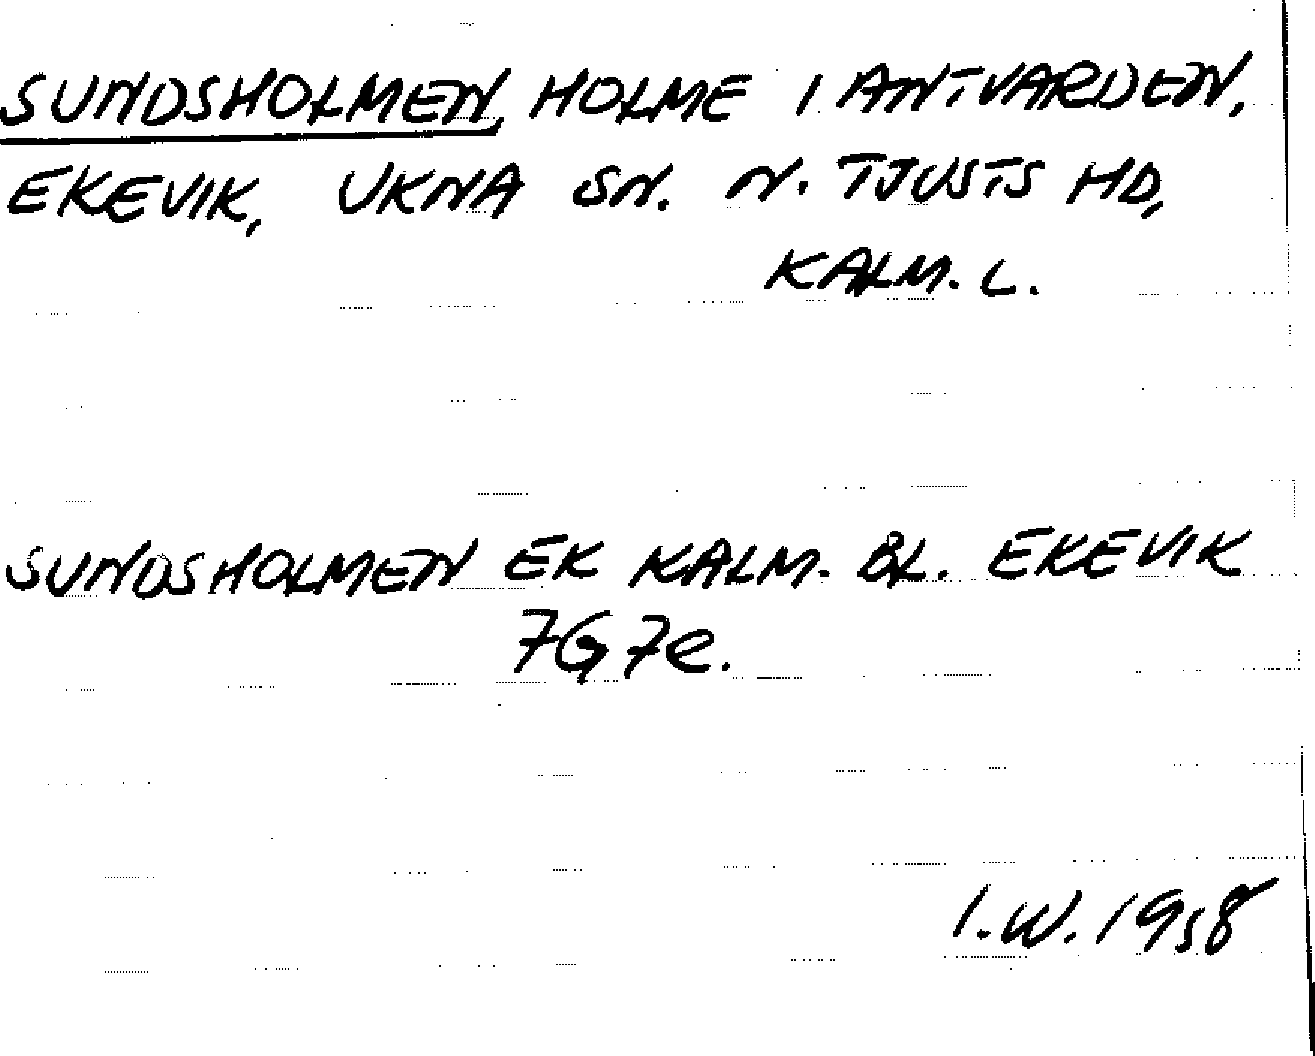 SUNDSHOLMEN, HOLME I ANTVARDEN,
EKEVIK, UKNA SN. N. TJUSTS HD,
KALM. L.
SUNDSHOLMEN EK KALM. BL. EKEVIK
7G7e.
I.W. 1958